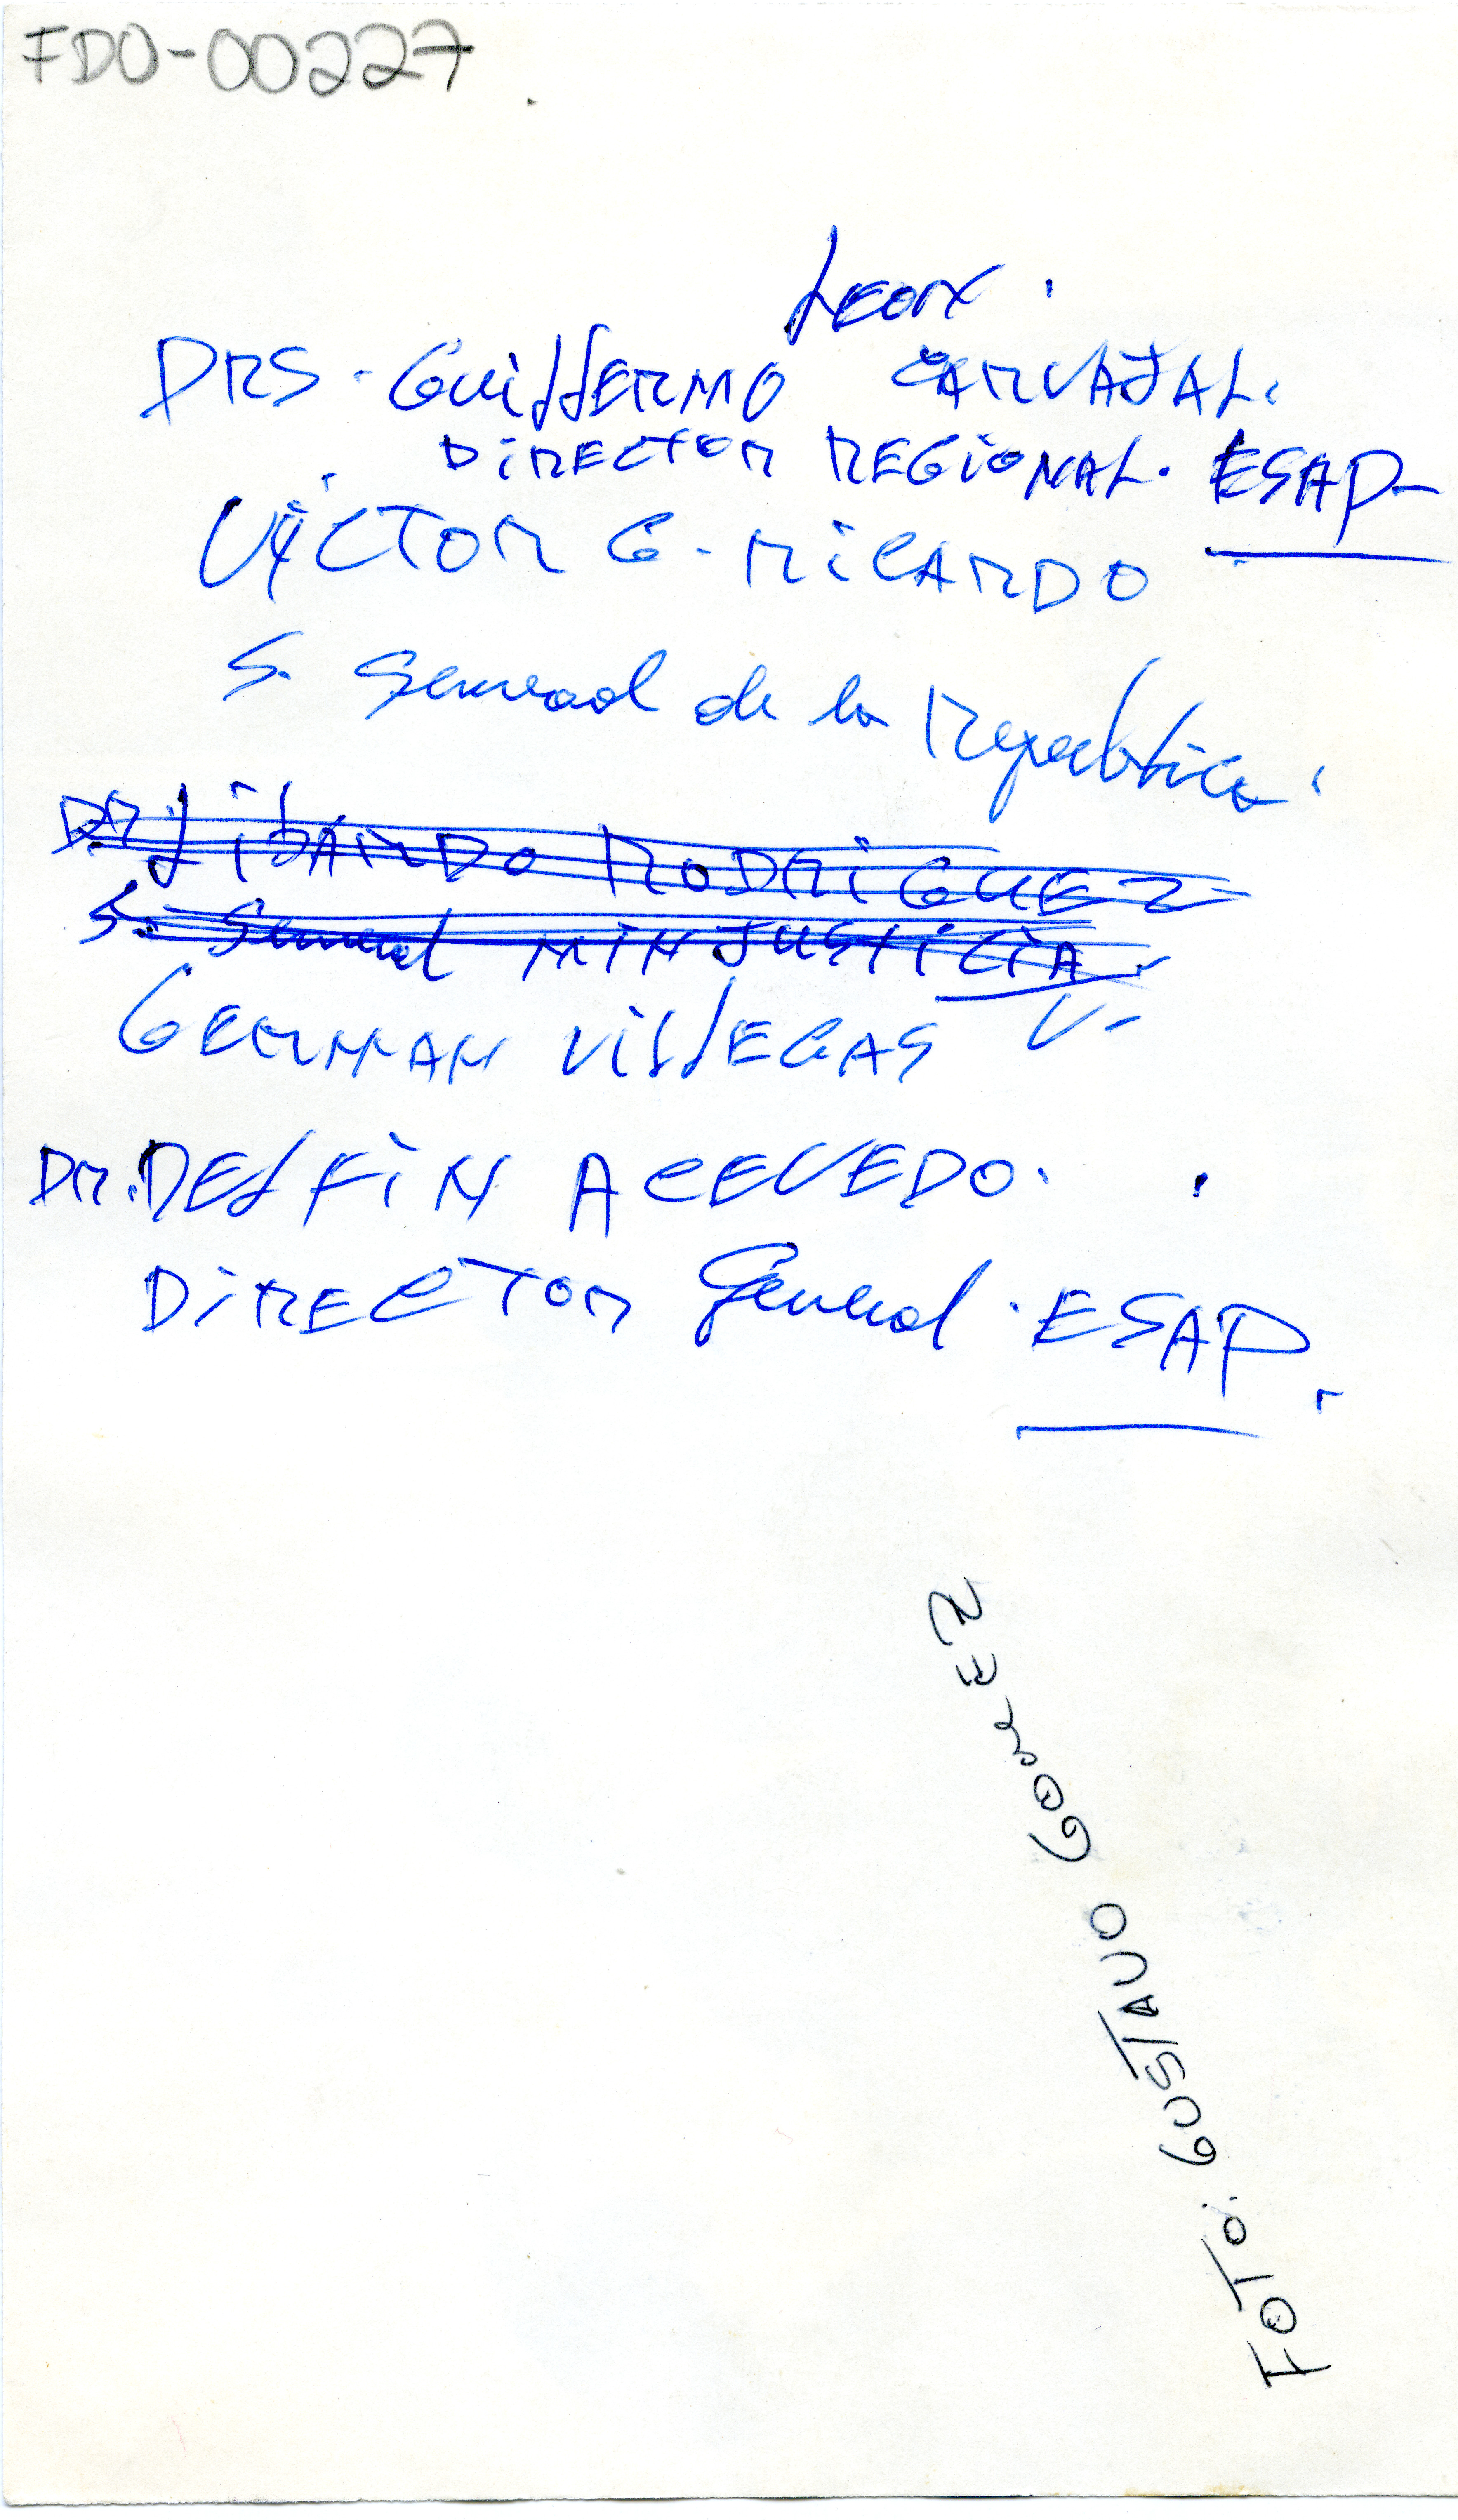 FDO-00227
Leon
DRS. Guillermo CARVAJAL.
DIRECTOR REGIONAL. ESAP-
VICTOR G. RICARDO
S. General de la Republica.
DR. LIBARDO RODRIGUEZ
S. General MINJUSTICIA
GERMAN VILLEGAS V.
DR. DELFIN ACEVEDO.
DIRECTOR General. ESAP.
FOTO: GUSTAVO GOMEZ